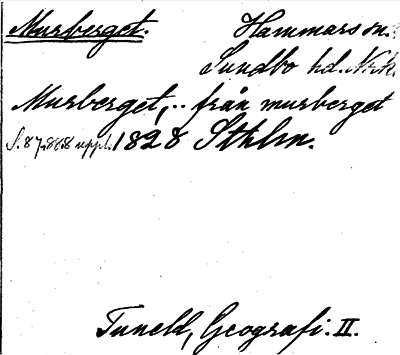 Murberget. Hammars sn.
Sundbo hd. Nrk.
Murberget, .. från murberget
S. 87, 8:e uppl. 1828 Sthlm.
Tuneld, Geografi. II.